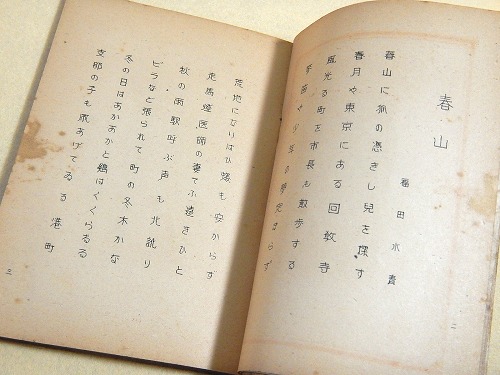 春山
福田水青
春山に狐の憑きし兒を探す
春月や東京にある回教寺
風光る町を市長も散歩する
走馬燈医師の妻てふ遠きひと
秋の雨駅呼ぶ声も北訛り
ビラなど張られて町の冬木かな
冬の日はあかあかと鶏はくくらるる
支那の子も凧あげてゐる港町
二
三